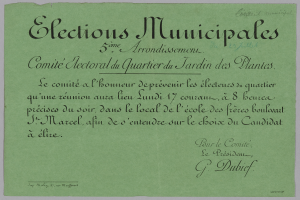 Elections Municipales
5ème Arrondissement
Comité Électoral du Quartier du Jardin des Plantes.
Le comité a l'honneur de prévenir les électeurs du quartier
qu'une réunion aura lieu Lundi 17 courant, à 8 heures
précises du soir, dans le local de l'école des frères boulevart
St. Marcel, afin de s'entendre sur le choix du Candidat
à élire.
Pour le Comité
Le Président,
G. Dubief